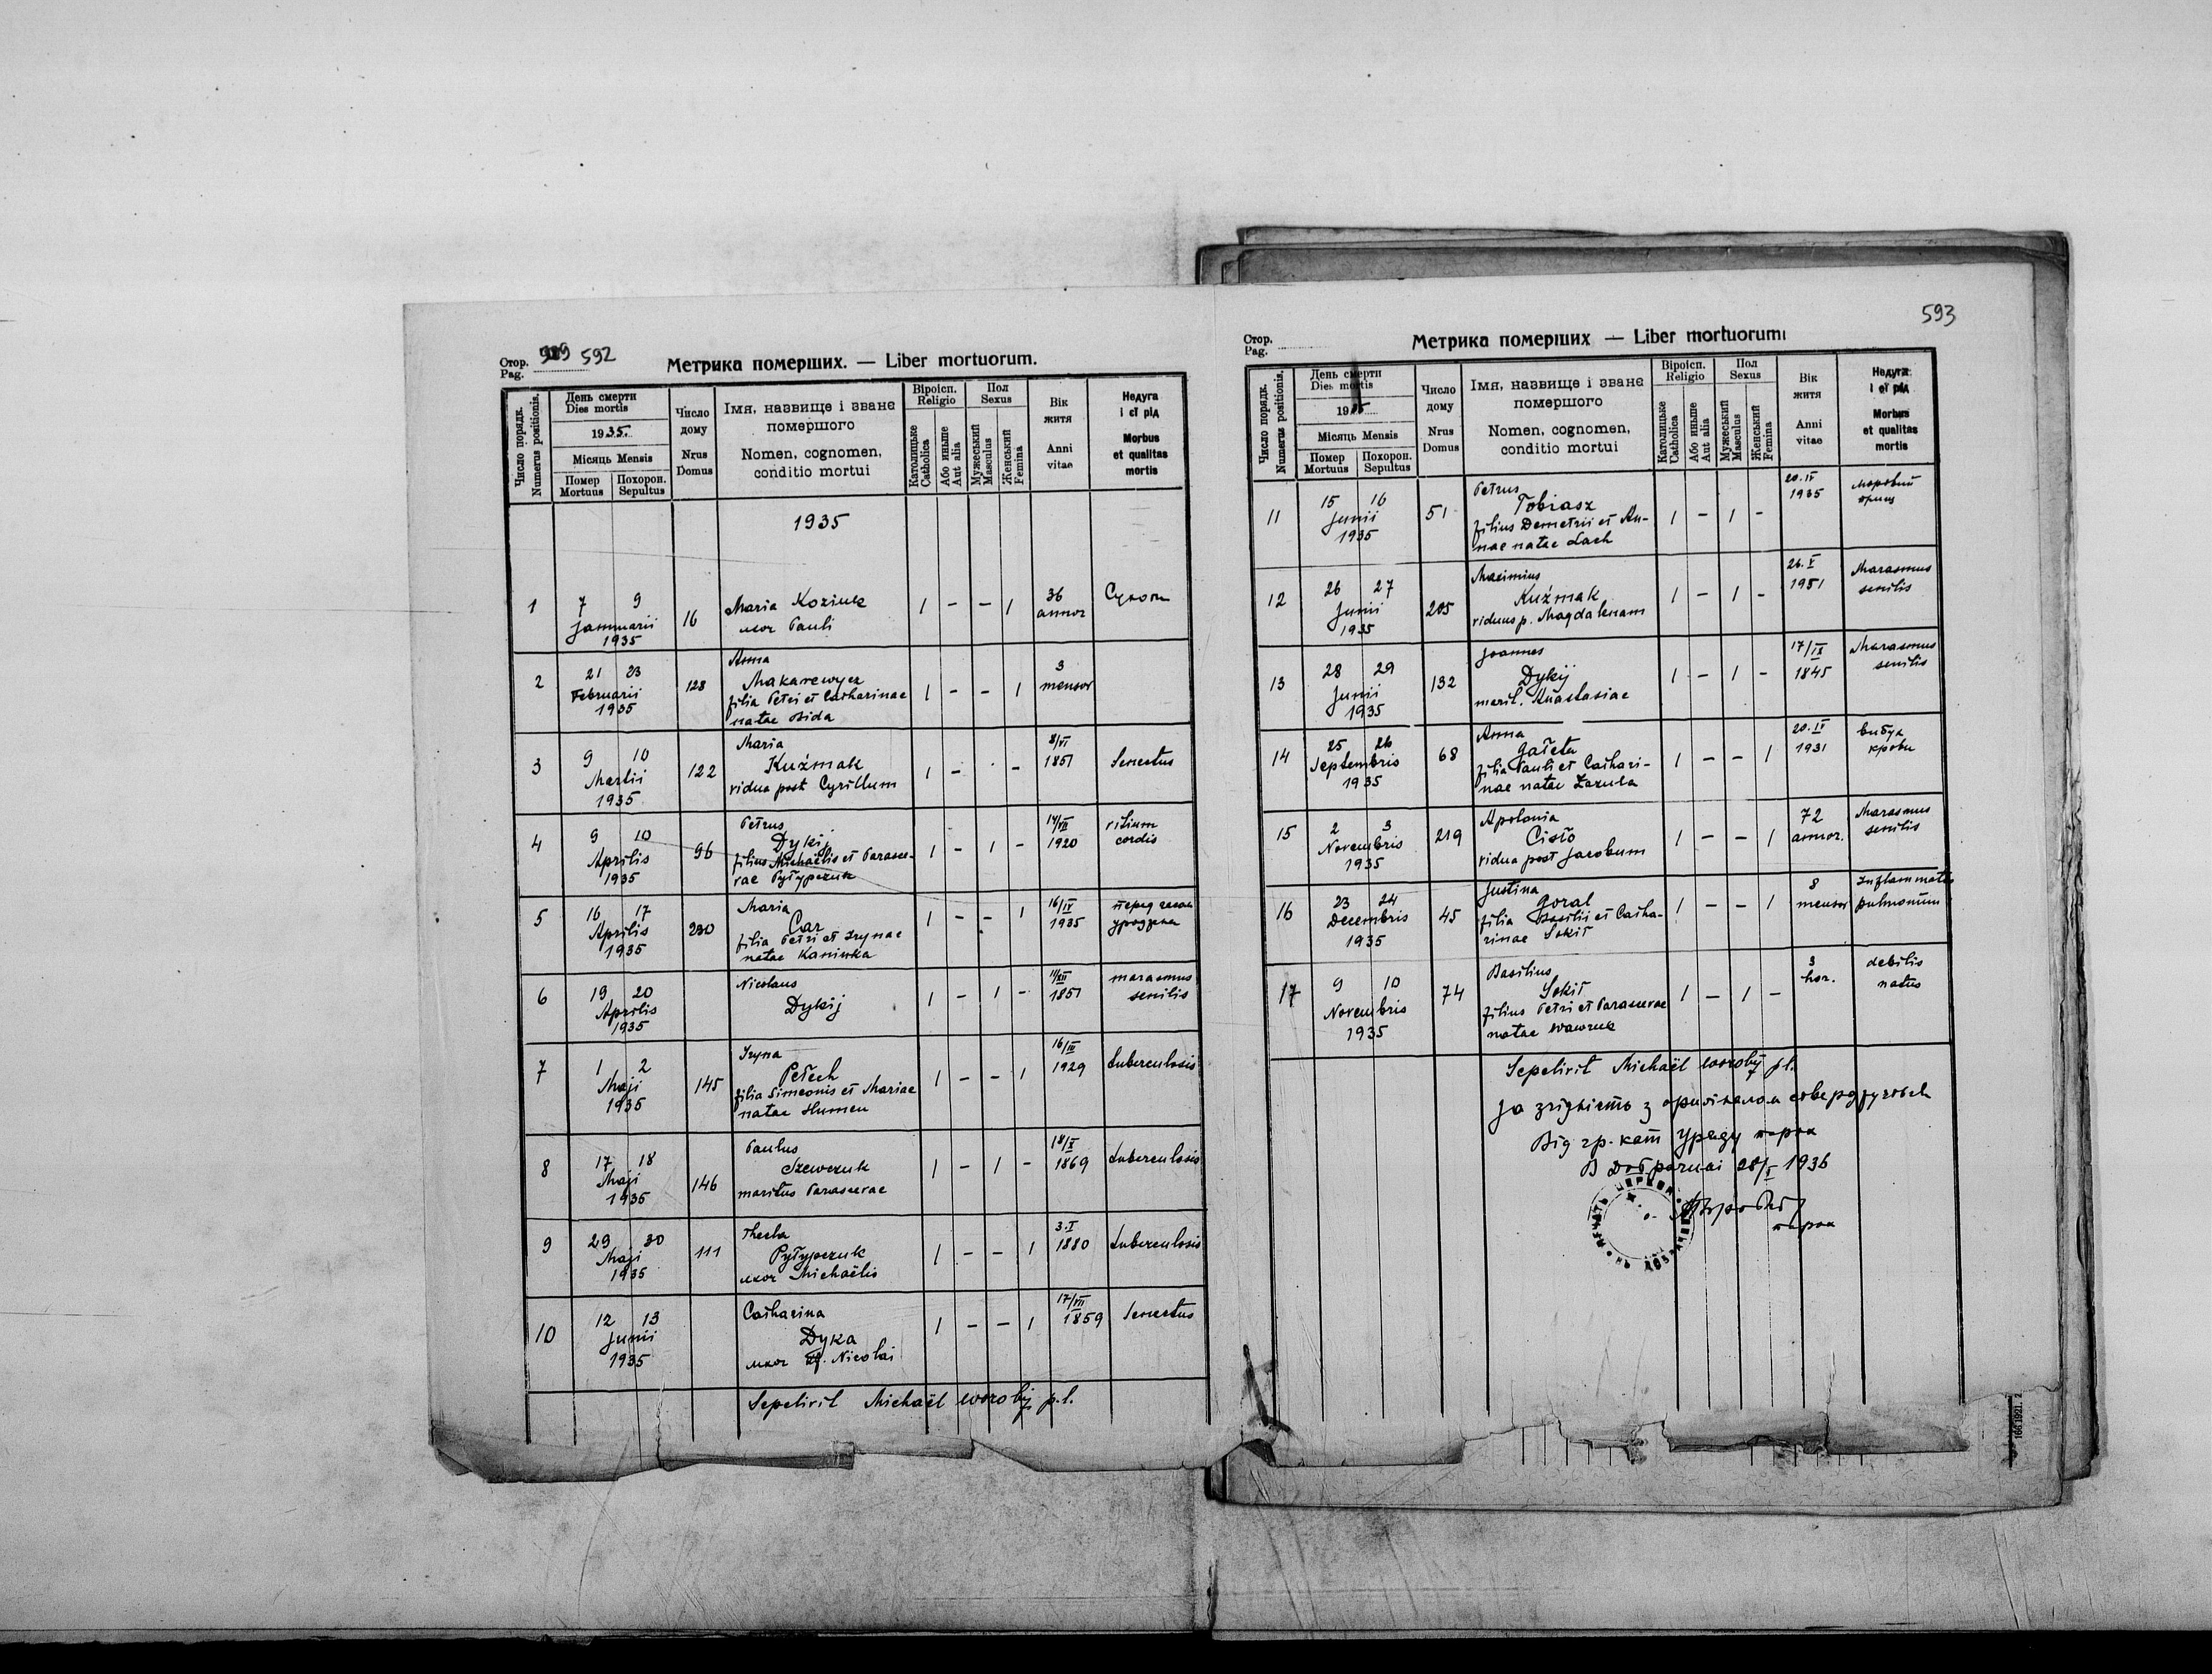 Стор. 592
Pag.
Метрика померших. — Liber mortuorum.
Число порядк. Numerus positionis.
День смерти
Dies mortis
1935.
Місяць Mensis
Помер Mortuus
Похорон. Sepultus
Число дому
Nrus Domus
Імя, назвище і зване помершого
Nomen, cognomen, conditio mortui
Віроісп. Religio
Католицьке Catholica
Або иньше Aut alia
Пол Sexus
Мужеський Masculus
Женський Femina
Вік житя
Anni vitae
Недуга і єї рід
Morbus et qualitas mortis
1935
1 7 9 Januarii 1935 16 Maria Koziuk 1 - - 1 36 annor Сухоти
uxor Pauli
2 21 23 Februarii 1935 128 Anna 1 - - 1 3 mensor
Makarewycz
filia Petri et Catharinae
natae Bida
3 9 10 Martii 1935 122 Maria 1 - - 8/VI 1851 Senectus
Kuźmak
vidua post Cyrillum
4 9 10 Aprilis 1935 96 Petrus 1 - 1 - 14/VII 1920 vitium cordis
Dykij
filius Michaëlis et Parasce-
vae Pyłypczuk
5 16 17 Aprilis 1935 230 Maria 1 - - 1 16/IV 1935 перед часом уроджена
Car
filia Petri et Irynae
natae Kaninka
6 19 20 Aprilis 1935 Nicolaus 1 - 1 - 11/XII 1851 marasmus senilis
Dykij
7 1 2 Maji 1935 145 Iryna 1 - - 1 16/III 1929 tuberculosis
Pełech
filia Simeonis et Mariae
natae Humen
8 17 18 Maji 1935 146 Paulus 1 - 1 - 18/X 1869 tuberculosis
Szewczuk
maritus Parascevae
9 29 30 Maji 1935 111 Thecla 1 - - 1 3.I 1880 tuberculosis
Pyłypczuk
uxor Michaëlis
10 12 13 Junii 1935 Catharina 1 - - 1 17/VII 1859 Senectus
Dyka
uxor Nicolai
Sepelivit Michaël Worobij p.l.
593
Стор.
Pag.
Метрика померших — Liber mortuorum
Число порядк. Numerus positionis.
День смерти
Dies mortis
1935
Місяць Mensis
Помер Mortuus
Похорон. Sepultus
Число дому
Nrus Domus
Імя, назвище і зване помершого
Nomen, cognomen, conditio mortui
Віроісп. Religio
Католицьке Catholica
Або иньше Aut alia
Пол Sexus
Мужеський Masculus
Женський Femina
Вік житя
Anni vitae
Недуга і єї рід
Morbus et qualitas mortis
11 15 16 Junii 1935 51 Petrus 1 - 1 - 20.IV 1935
Tobiasz
filius Demetrii et An-
nae natae Lach
12 26 27 Junii 1935 205 Maximius 1 - 1 - 26.V Marasmus senilis
Kuźmak
viduus p. Magdalenam
13 28 29 Junii 1935 132 Joannes 1 - 1 - 17/IX 1845 Marasmus senilis
Dykij
marit. Anastasiae
14 25 26 Septembris 1935 68 Anna 1 - - 1 20.IV 1931 вибух крови
Gałeta
filia Pauli et Cathari-
nae natae Zazula
15 2 3 Novembris 1935 219 Apolonia 1 - - 1 72 annor. Marasmus senilis
Cisło
vidua post Jacobum
16 23 24 Decembris 1935 45 Justina 1 - - 1 8 mensor Inflammatio pulmonum
Goral
filia Basilii et Catha-
rinae Sokił
17 9 10 Novembris 1935 74 Basilius 1 - 1 - 3 hor. debilis natus
Sokił
filius Petri et Parascevae
natae Wawruk
Sepelivit Michaël Worobij p.l.
За згідність з оригіналом
Від гр. кат Уряду парох
В 28/I 1936
парох
166 1921.